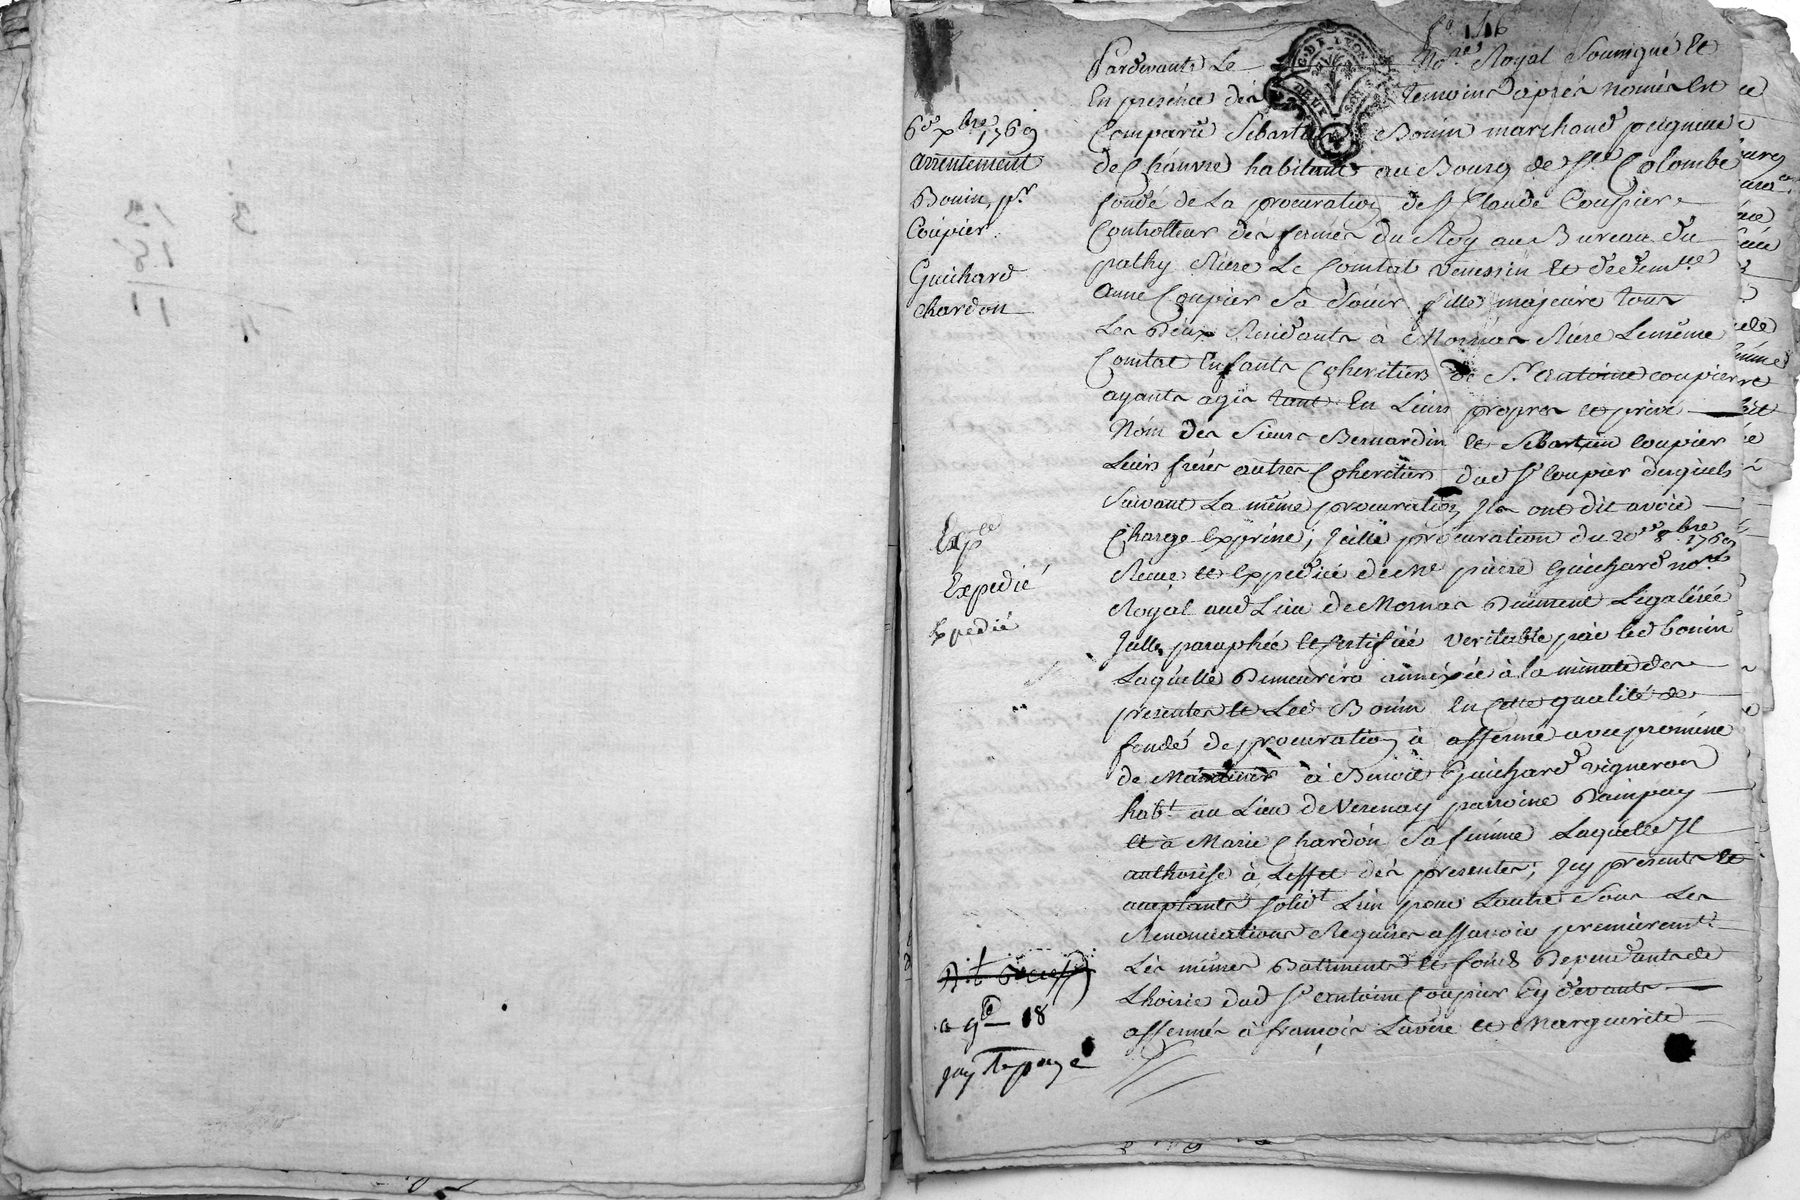 fo 116
Pardevant Le Nore Royal Soussigné Et
En presénce dés temoins aprés només Est
Comparu Sébastien Bonin marchand peigneur
de Chanvre habitant au Bourg de Ste Colombe
fondé de La procuration de Sr Claude Coupier
Controlleur dés fermes du Roy au Bureau du
pathy Riere Le Comtat Venessin Et de demlle
Anne Coupier Sa Soeur fille majeure tous
Les Deux Residants à Mornas Riere Le même
Comtat Enfants Coheritiers de Sr Antoine coupier
ayants agis tant En Leurs propres et privé
Nom des Sieurs Bernardin et Sebastien Coupier
Leurs frerés autres Coheritiers dud Sr Coupier desquels
Suivant La même procuration Ils ont dit avoir
Charge Exprésse; Icelle procuration du 20e 8bre 1769
Recue et Expediée de Me pierre Guichard nore
Royal aud Lieu de Mornas Duement Légalisée
Icelle paraphée et Certifiée Veritable par led bonin
Laquelle Demeurera annéxée à la minute des
presentes et Led Bonin En Cette qualité de
fondé de procuration à affermé avec promésse
de Maintenir à Benoit Guichard Vigneron
habt au Lieu de Verenay parroisse Dampuy
et à Marie Chardon Sa femme Laquelle Il
authorise à L'effet dés presentes; Icy presents et
acceptants Solidt L'un pour Lautre Sous Les
Renonciations Requises assavoir premieremt
Lés mêmes Batiments et fonds Dependants de
Lhoirie dud Sr Antoine Coupier Cy devant
affermés à françois Lavere et Marguerite
6e xbre 1769
arrentement
Bonin, pr
Coupier
Guichard
Chardon
Expée
Expedié
Expedié
G. DE LYON
DEUX SOLS